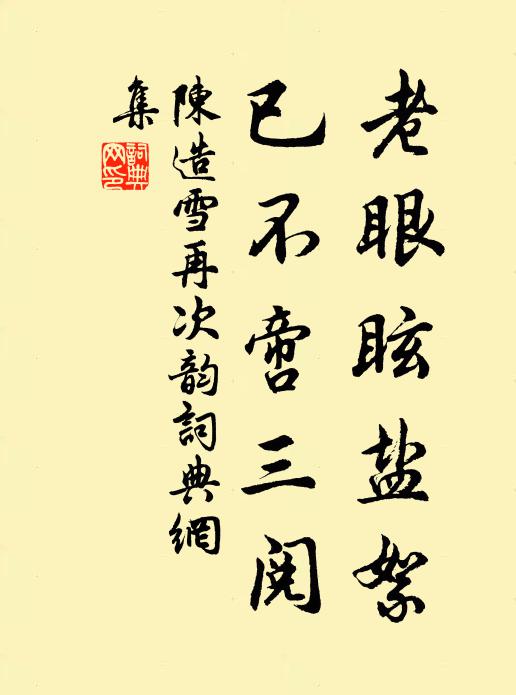 老眼眩盐絮
已不啻三阅
陳造雪再次韵詞典網
集
詞典
网印